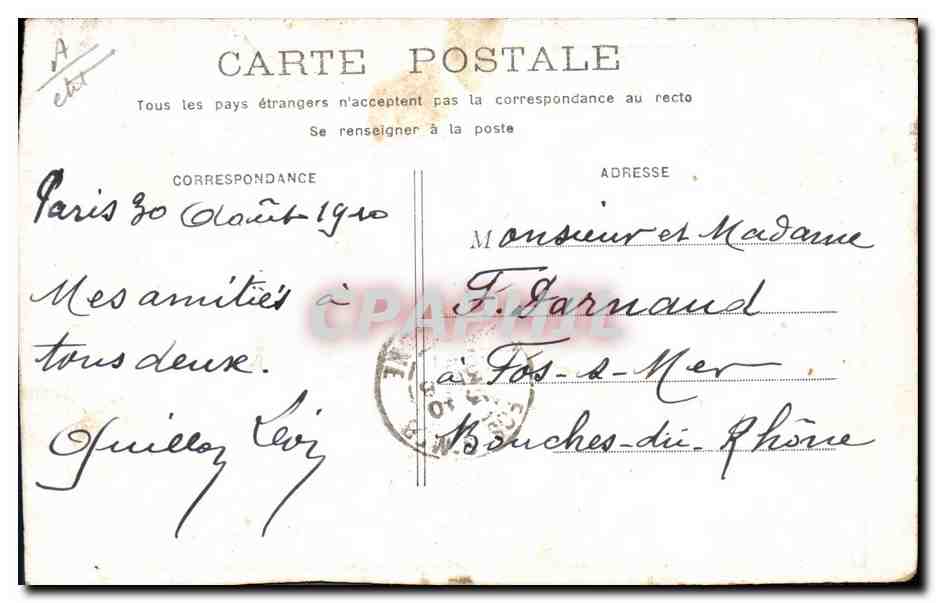 A
CARTE POSTALE
Tous les pays étrangers n'acceptent pas la correspondance au recto
Se renseigner à la poste
CORRESPONDANCE
Paris 30 Août 1910
Mes amitiés à
tous deux.
ADRESSE
Monsieur et Madame
F. Darnaud
à Fos-s-Mer
Bouches-du-Rhône
CPAPHIL